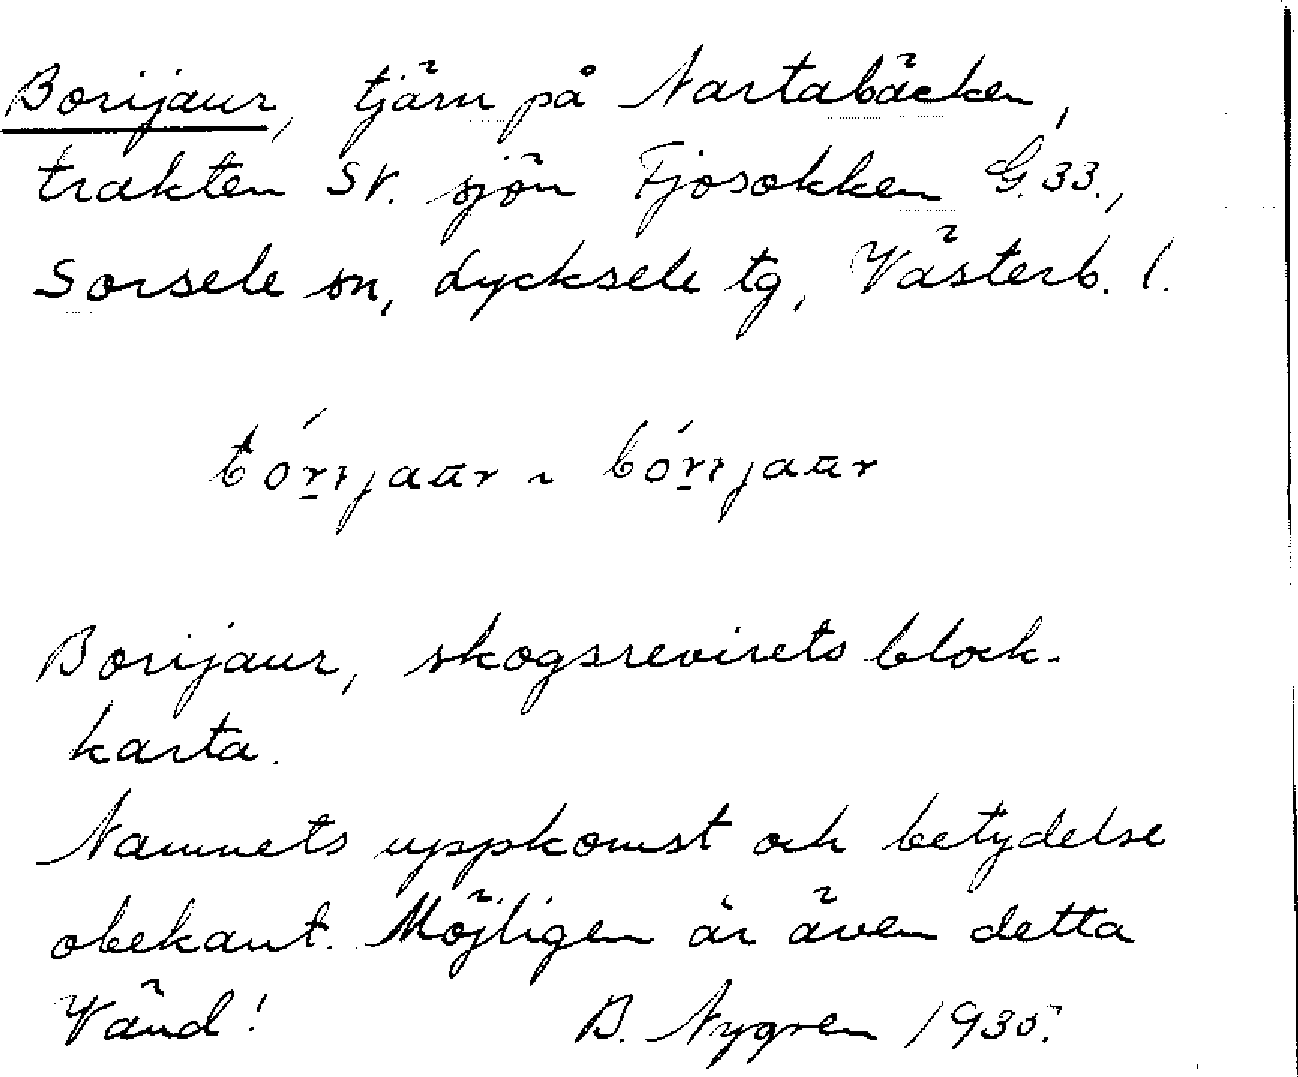 Borijaur, tjärn på Nartabäcken,
trakten SV. sjön Fjosokken G.33.,
Sorsele sn, Lycksele tg, Västerb. l.
bórijaur ~ bórijaur
Borijaur, skogsrevirets block-
karta.
Namnets uppkomst och betydelse
obekant. Möjligen är även detta
Vänd! B. Nygren 1935.